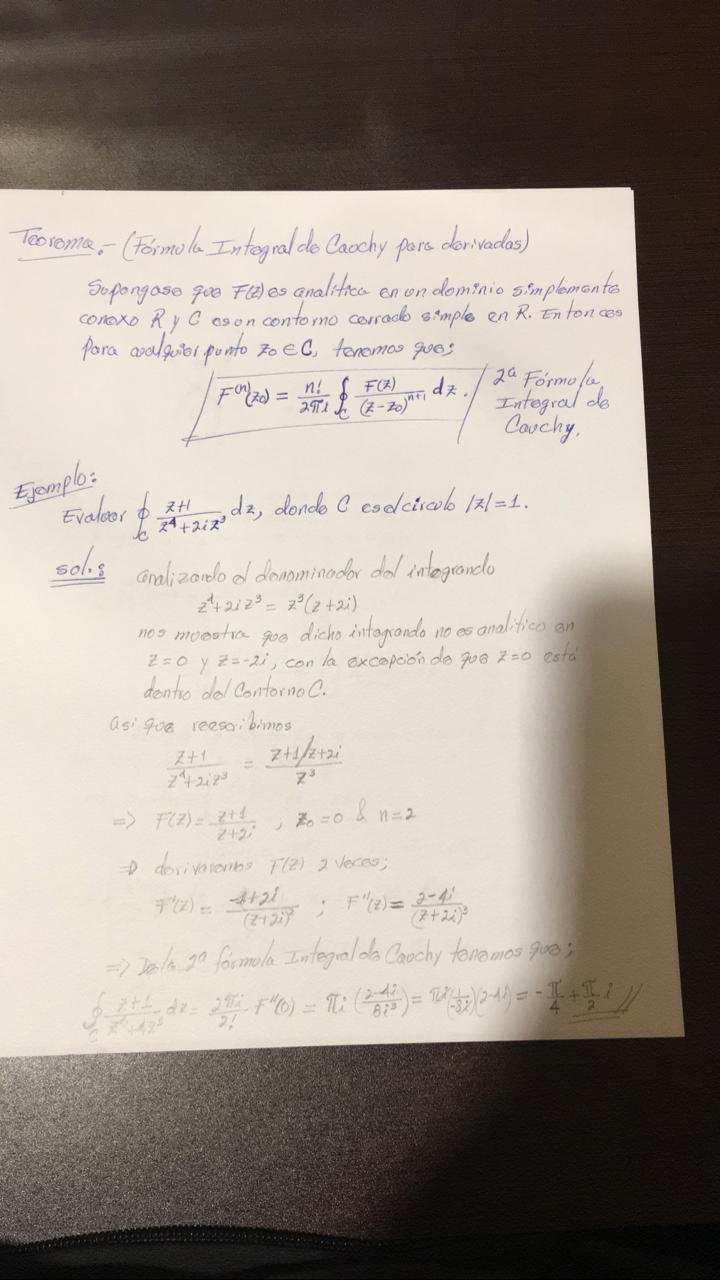 Teorema.- (Fórmula Integral de Cauchy para derivadas)
Supongase que F(z) es analítica en un dominio simplemente
conexo R y C es un contorno cerrado simple en R. Entonces
para cualquier punto z₀ ∈ C, tenemos que;
F⁽ⁿ⁾(z₀) = n!/2πi ∮_C F(z)/(z-z₀)ⁿ⁺¹ dz. 2ª Fórmula
Integral de
Cauchy.
Ejemplo:
Evaluar ∮_C z+1/z⁴+2iz³ dz, donde C es el círculo |z|=1.
sol.:
analizando el denominador del integrando
z⁴+2iz³ = z³(z+2i)
nos muestra que dicho integrando no es analítico en
z=0 y z=-2i, con la excepción de que z=0 está
dentro del Contorno C.
así que reescribimos
z+1/z⁴+2iz³ = z+1/z+2i/z³
=> F(z) = z+1/z+2i ; z₀=0 & n=2
⇒ derivaremos F(z) 2 veces;
F'(z) = -1+2i/(z+2i)² ; F''(z) = 2-4i/(z+2i)³
=> De la 2ª fórmula Integral de Cauchy tenemos que;
∮_C z+1/z⁴+4z³ dz = 2πi/2! F''(0) = πi (2-4i/8i³) = πi(1/-8i)(2-4i) = -π/4 + π/2 i //